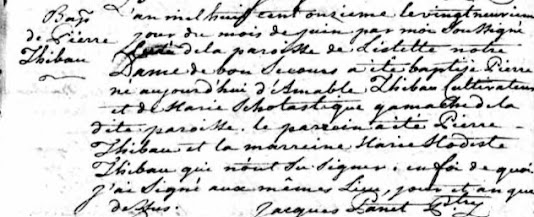 Bapt
de Pierre
Thibau
L'an mil huit cent onzieme le vingt neuviem
jour du mois de juin par moi Soussigné
Curé de la paroisse de L'islette notre
Dame de bon Secours a été baptisé Pierre
né aujourd'hui d'Amable Thibau Cultivateur
et de Marie Scholastique gamache de la
dite paroisse. le parrein a été Pierre
Thibau et la marreine Marie Modeste
Thibau qui n'ont Su Signer. en foi de quoi
j'ai Signé aux mêmes Lieu, jour et an que
dessus. Jacques Panet Ptre